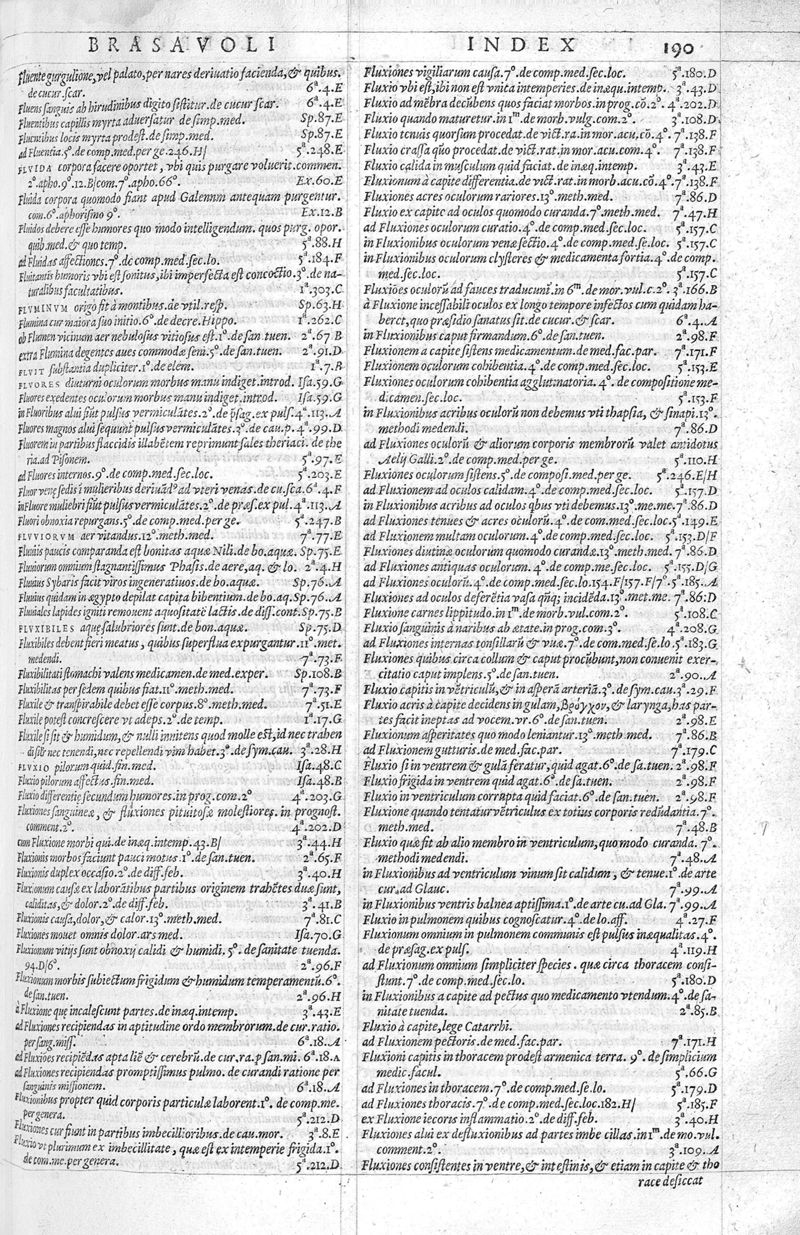 BRASAVOLI INDEX 190
Fluente gurgulione, vel palato, per nares deriuatio facienda, & quibus.
de cucur. scar. 6ª.4.E
Fluens sanguis ab hirudinibus digito sistitur. de cucur scar. 6ª.4.E
Fluentibus capillis myrta aduersatur de simp. med. Sp.87.E
Fluentibus locis myrta prodest. de simp. med. Sp.87.E
ad Fluentia. 5º. de comp. med. per ge. 246.H/ 5ª.248.E
FLVIDA corpora facere oportet, vbi quis purgare voluerit. commen.
2º. apho. 9º. 12.B/com. 7º. apho. 66º. Ex.60.E
Fluida corpora quomodo fiant apud Galenum antequam purgentur.
com. 6º. aphorismo 9º. Ex.12.B
Fluidos debere esse humores quo modo intelligendum. quos purg. opor.
quib. med. & quo temp. 5ª.88.H
ad Fluidas affectiones. 7º. de comp. med. sec. lo. 5ª.184.F
Fluitantis humoris vbi est sonitus, ibi imperfecta est concoctio. 3º. de na-
turalibus facultatibus. 1ª.303.C
FLVMINVM origo fit à montibus. de vtil. resp. Sp.63.H
Flumina cur maiora suo initio. 6º. de decre. Hippo. 1ª.262.C
ob Flumen vicinum aer nebulosus vitiosus est. 1º. de san tuen. 2ª.67.B
extra Flumina degentes aues commodæ seni. 5º. de san. tuen. 2ª.91.D
FLVIT substantia dupliciter. 1º. de elem. 1ª.7.B
FLVORES diuturni oculorum morbus manu indiget. introd. Isa.59.G
Fluores exedentes oculorum morbus manu indiget. introd. Isa.59.G
in Fluoribus alui fiūt pulsus vermiculātes. 2º. de p̄sag. ex puls. 4ª.113.A
Fluores magnos alui sequunt̄ pulsus vermiculātes. 3º. de cau. p. 4ª.99.D
Fluorem in partibus flaccidis illabētem reprimunt sales theriaci. de the
ria. ad Pisonem. 5ª.97.E
ad Fluores internos. 9º. de comp. med. sec. loc. 5ª.203.E
Fluor venę sedis ī mulieribus deriuād' ad vteri venas. de cu. sca. 6ª.4.F
in Fluore muliebri fiūt pulsus vermiculātes. 2º. de præs. ex pul. 4ª.113.A
Fluori obnoxia repurgans. 5º. de comp. med. per ge. 5ª.247.B
FLVVIORVM aer vitandus. 12º. meth. med. 7ª.77.E
Fluuiis paucis comparanda est bonitas aquæ Nili. de bo. aquæ. Sp.75.E
Fluuiorum omnium stagnantissimus Phasis. de aere, aq. & lo. 2ª.4.H
Fluuius Sybaris facit viros ingeneratiuos. de bo. aquæ. Sp.76.A
Fluuius quidam in ægypto depilat capita bibentium. de bo. aq. Sp.76.A
Fluuiales lapides igniti remouent aquositatē lactis. de diss. cont. Sp.75.B
FLVXIBILES aquę salubriores sunt. de bon. aquæ. Sp.75.D
Fluxibiles debent fieri meatus, quibus superflua expurgantur. 11º. met.
medendi. 7ª.73.F
Fluxibilitati stomachi valens medicamen. de med. exper. Sp.108.B
Fluxibilitas per sedem quibus fiat. 11º. meth. med. 7ª.73.F
Fluxile & transpirabile debet esse corpus. 8º. meth. med. 7ª.51.E
Fluxile potest concrescere vt adeps. 2º. de temp. 1ª.17.G
Fluxile si sit & humidum, & nulli innitens quod molle est, id nec trahen
di sit̄ nec tenendi, nec repellendi vim habet. 3º. de sym. cau. 3ª.28.H
FLVXIO pilorum quid. fin. med. Isa.48.C
Fluxio pilorum affectus. fin. med. Isa.48.B
Fluxio differentię secundum humores. in prog. com. 2º 4ª.203.G
Fluxiones sanguineæ, & fluxiones pituitosæ molestiores. in prognost.
comment. 2º. 4ª.202.D
cum Fluxione morbi qui. de inæq. intemp. 43.B/ 3ª.44.H
Fluxionis morbos faciunt pauci motus. 1º. de san. tuen. 2ª.65.F
Fluxionis duplex occasio. 2º. de diff. feb. 3ª.40.H
Fluxionum causæ ex laborātibus partibus originem trahētes duæ sunt,
caliditas, & dolor. 2º. de diff. feb. 3ª.41.B
Fluxionis causa, dolor, & calor. 13º. meth. med. 7ª.81.C
Fluxiones mouet omnis dolor. ars med. Isa.70.G
Fluxionum vitijs sunt obnoxij calidi & humidi. 5º. de sanitate tuenda.
94.D/6º. 2ª.96.F
Fluxionum morbis subiectum frigidum & humidum temperamentū. 6º.
de san. tuen. 2ª.96.H
à Fluxione que incalescunt partes. de inæq. intemp. 3ª.43.E
ad Fluxiones recipiendas in aptitudine ordo membrorum. de cur. ratio.
per sang. miss. 6ª.18.A
ad Fluxiōes recipiēdas apta liē & cerebrū. de cur. ra. p san. mi. 6ª.18.A
ad Fluxiones recipiendas promptissimus pulmo. de curandi ratione per
sanguinis missionem. 6ª.18.A
Fluxionibus propter quid corporis particulæ laborent. 1º. de comp. me.
per genera. 5ª.212.D
Fluxiones cur fiunt in partibus imbecillioribus. de cau. mor. 3ª.8.E
Fluxio vt plurimum ex imbecillitate, quæ est ex intemperie frigida. 1º.
de com. me. per genera. 5ª.212.D
Fluxiones vigiliarum causa. 7º. de comp. med. sec. loc. 5ª.180.D
Fluxio vbi est, ibi non est vnita intemperies. de inæqu. intemp. 3ª.43.D
Fluxio ad mēbra decūbens quos faciat morbos. in prog. cō. 2º. 4ª.202.D
Fluxio quando maturetur. in 1ᵐ. de morb. vulg. com. 2º. 3ª.108.D
Fluxio tenuis quorsum procedat. de vict. ra. in mor. acu, cō. 4º. 7ª.138.F
Fluxio crassa quo procedat. de vict. rat. in mor. acu. com. 4º. 7ª.138.F
Fluxio calida in musculum quid faciat. de inæq. intemp. 3ª.43.E
Fluxionum à capite differentia. de vict. rat. in morb. acu. cō. 4º. 7ª.138.F
Fluxiones acres oculorum rariores. 13º. meth. med. 7ª.86.D
Fluxio ex capite ad oculos quomodo curanda. 7º. meth. med. 7ª.47.H
ad Fluxiones oculorum curatio. 4º. de comp. med. sec. loc. 5ª.157.C
in Fluxionibus oculorum venæ sectio. 4º. de comp. med. se. loc. 5ª.157.C
in Fluxionibus oculorum clysteres & medicamenta fortia. 4º. de comp.
med. sec. loc. 5ª.157.C
Fluxiōes oculorū ad fauces traducuni. in 6ᵐ. de mor. vul. c. 2º. 3ª.166.B
à Fluxione incessabili oculos ex longo tempore infectos cum quidam ha-
beret, quo præsidio sanatus sit. de cucur. & scar. 6ª.4.A
in Fluxionibus caput firmandum. 6º. de san. tuen. 2ª.98.F
Fluxionem a capite sistens medicamentum. de med. fac. par. 7ª.171.F
Fluxionem oculorum cohibentia. 4º. de comp. med. sec. loc. 5ª.153.E
Fluxiones oculorum cohibentia agglutinatoria. 4º. de compositione me-
dicamen. sec. loc. 5ª.153.F
in Fluxionibus acribus oculorū non debemus vti thapsia, & sinapi. 13º.
methodi medendi. 7ª.86.D
ad Fluxiones oculorū & aliorum corporis membrorū valet antidotus
Aelij Galli. 2º. de comp. med. per ge. 5ª.110.H
Fluxiones oculorum sistens. 5º. de composi. med. per ge. 5ª.246.E/H
ad Fluxionem ad oculos calidam. 4º. de comp. med. sec. loc. 5ª.157.D
in Fluxionibus acribus ad oculos qbus vti debemus. 13º. me. me. 7ª.86.D
ad Fluxiones tenues & acres oculorū. 4º. de com. med. sec. loc. 5ª.149.E
ad Fluxionem multam oculorum. 4º. de comp. med. sec. loc. 5ª.153.D/F
Fluxiones diutinæ oculorum quomodo curandæ. 13º. meth. med. 7ª.86.D
ad Fluxiones antiquas oculorum. 4º. de comp. me. sec. loc. 5ª.155.D/G
ad Fluxiones oculorū. 4º. de comp. med. sec. lo. 154.F/157.F/7º. 5ª.185.A
Fluxiones ad oculos deferētia vasa qñq; incidēda. 13º. met. me. 7ª.86.D
Fluxione carnes lippitudo. in 1ᵐ. de morb. vul. com. 2º. 5ª.108.C
Fluxio sanguinis à naribus ab ætate. in prog. com. 3º. 4ª.208.G
ad Fluxiones internas tonsillarū & vuæ. 7º. de com. me. se. lo 5ª.183.G
Fluxiones quibus circa collum & caput procūbunt, non conuenit exer-
citatio caput implens. 5º. de san. tuen. 2ª.90.A
Fluxio capitis in vētriculū, & in asperā arteriā. 3º. de sym. cau. 3ª.29.F
Fluxio acris à capite decidens in gulam, βρόγχον, & larynga, has par-
tes facit ineptas ad vocem. vr. 6º. de san. tuen. 2ª.98.E
Fluxionum asperitates quo modo leniantur. 13º. meth. med. 7ª.86.B
ad Fluxionem gutturis. de med. fac. par. 7ª.179.C
Fluxio si in ventrem & gulā feratur, quid agat. 6º. de sa. tuen. 2ª.98.F
Fluxio frigida in ventrem quid agat. 6º. de sa. tuen. 2ª.98.F
Fluxio in ventriculum corrupta quid faciat. 6º. de san. tuen. 2ª.98.F
Fluxione quando tentatur vētriculus ex totius corporis redūdantia. 7º.
meth. med. 7ª.48.B
Fluxio quæ fit ab alio membro in ventriculum, quo modo curanda. 7º.
methodi medendi. 7ª.48.A
in Fluxionibus ad ventriculum vinum sit calidum, & tenue. 1º. de arte
cur. ad Glauc. 7ª.99.A
in Fluxionibus ventris balnea aptissima. 1º. de arte cu. ad Gla. 7ª.99.A
Fluxio in pulmonem quibus cognoscatur. 4º. de lo. aff. 4ª.27.F
Fluxionum omnium in pulmonem communis est pulsus inæqualitas. 4º.
de præsag. ex puls. 4ª.119.H
ad Fluxionum omnium simpliciter species. quæ circa thoracem consi-
stunt. 7º. de comp. med. sec. lo. 5ª.180.D
in Fluxionibus a capite ad pectus quo medicamento vtendum. 4º. de sa-
nitate tuenda. 2ª.85.B
Fluxio à capite, lege Catarrhi.
ad Fluxionem pectoris. de med. fac. par. 7ª.171.H
Fluxioni capitis in thoracem prodest armenica terra. 9º. de simplicium
medic. facul. 5ª.66.G
ad Fluxiones in thoracem. 7º. de comp. med. se. lo. 5ª.179.D
ad Fluxiones thoracis. 7º. de comp. med. sec. loc. 182.H/ 5ª.185.F
ex Fluxione iecoris inflammatio. 2º. de diff. feb. 3ª.40.H
Fluxiones alui ex defluxionibus ad partes imbecillas. in 1ᵐ. de mo. vul.
comment. 2º. 3ª.109.A
Fluxiones consistentes in ventre, & intestinis, & etiam in capite & tho
race desiccat